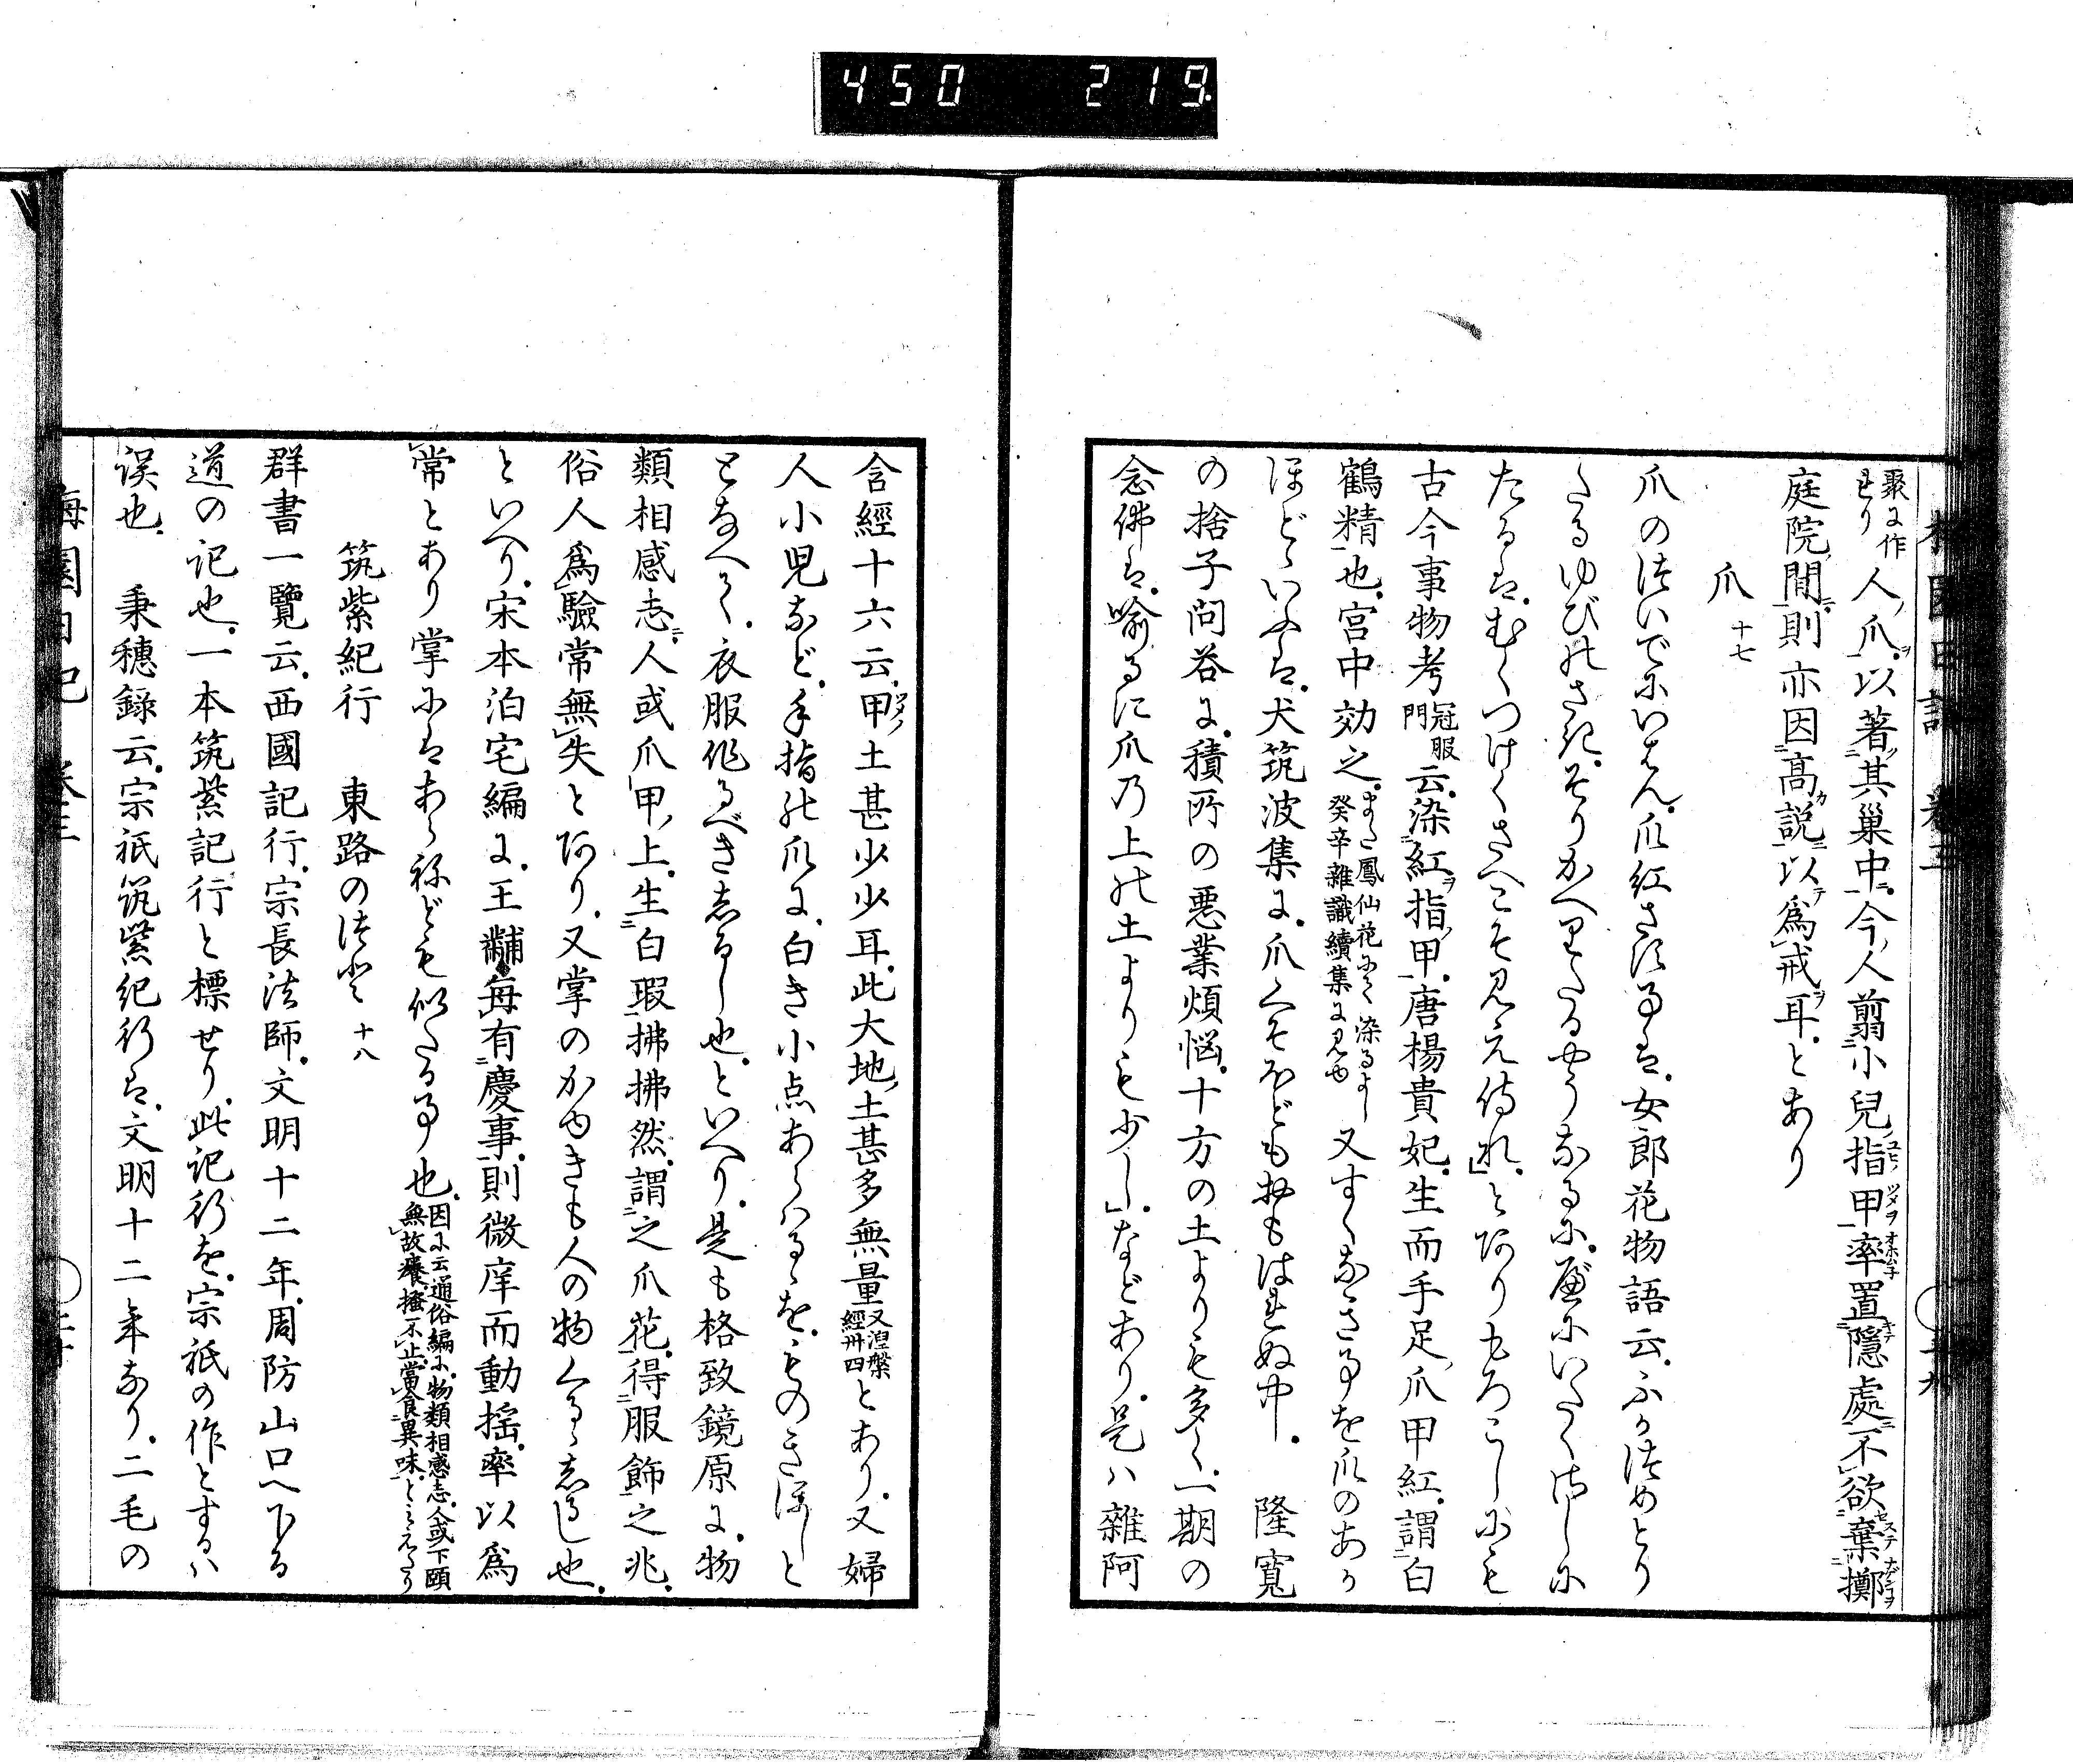 450 219
梅園日記 卷三
聚に作
れり
人ノ爪ヲ以著ニ其巢中ニ今ノ人翦ニ小兒ノ指甲ツメヲ率オホムネ置ニ隱處ニ不欲セ棄擲スルヿヲ
庭院ノ間ニ則亦因ニ高カ說ニ以テ爲戒ヲ耳とあり
爪 十七
爪のついでにいはん爪紅さす事は女郎花物語云ふかつめとり
たるゆびのさきそりかへりたるやうなるにべにいたくさしに
たるはむくつけくさへこそ見え侍れとありもろこしにも
古今事物考冠服
門云染ニ紅ヲ指ノ甲唐楊貴妃生而手足ノ爪甲紅謂ニ白
鶴精也宮中効之また鳳仙花にて染るよし
癸辛雜識續集に見ゆ又すくなきさまを爪のあか
ほどゝいふは犬筑波集に爪くそほどもおもはれぬ中 隆寬
の捨子問答に積所の惡業煩悩十方の土よりも多く一期の
念佛は喩るに爪の上の土よりも少しなどあり是ハ雜阿
含經十六云甲ツメノ土甚少少耳此大地ノ土甚多無量又湼槃
經卅四とあり又婦
人小児など手指の爪に白き小点あらはるゝをものきほしと
となへて衣服作るべきしるし也といへり是も格致鏡原に物
類相感志ニ人或爪ノ甲ノ上生ニ白瑕拂拂然謂ニ之爪花得ニ服飾之兆
俗人爲驗常無失とあり又掌のかゆきも人の物くるゝしるし也
といへり宋本泊宅編に王黼每有ニ慶事則微庠而動搖率以爲
常とあり掌にはあらねども似たる事也因に云通俗編に物類相感志人或下頤
無故癢搔不止當食異味とみえたり
筑紫紀行 東路のつと 十八
群書一覽云西國記行宗長法師文明十二年周防山口へ下る
道の記也一本筑紫記行と標せり此記行を宗祇の作とするハ
誤也 秉穗錄云宗祇筑紫紀行は文明十二年なり二毛の
梅園日記 卷三